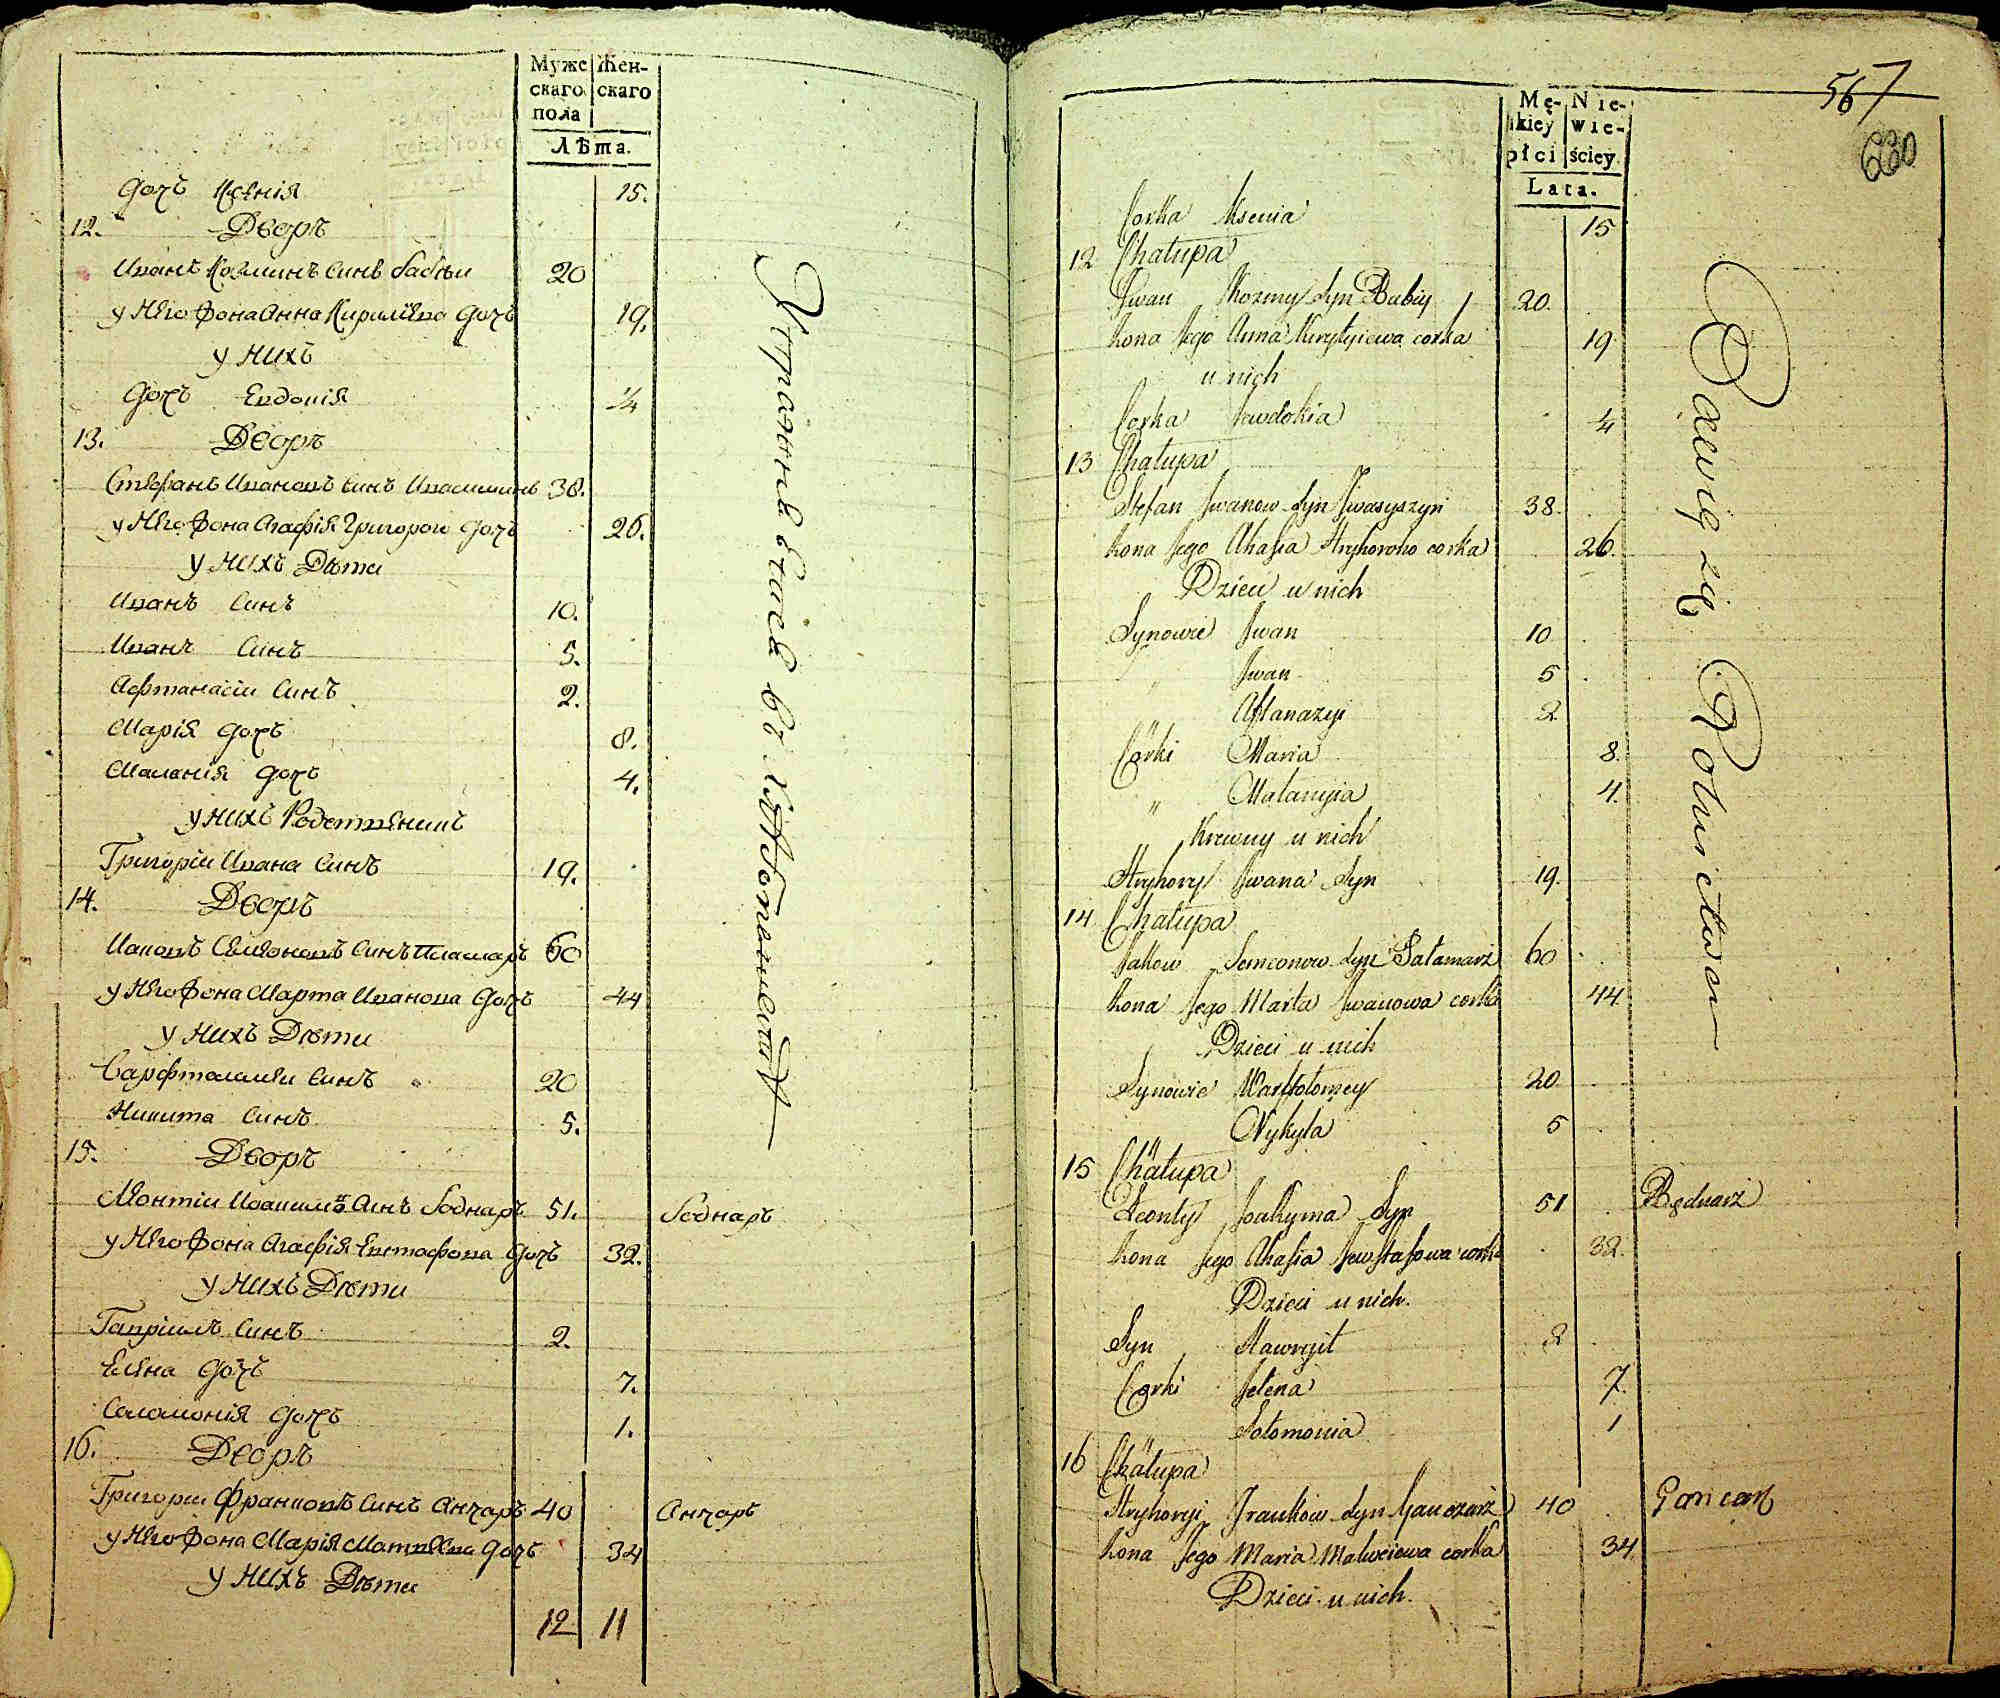 Муже Жен-
скаго скаго
пола
Лѣта.
Дочъ Ксенія 15.
12. Дворъ
Иванъ Козминъ синъ Бабѣи 20
у Него Жона Анна Кирилiева Дочъ 19.
у Нихъ
Дочъ Евдокія 1/4
13. Дворъ
Стефанъ Ивановъ синъ Ивасишинъ 38.
у Него Жона Агафія Григорого Дочъ 26.
у Нихъ Дѣти
Иванъ Синъ 10.
Иванъ Синъ 5.
Афтанасіи Синъ 2.
Марія Дочъ 8.
Маланія Дочъ 4.
у Нихъ Родственникъ
Григоріи Ивана Синъ 19.
14. Дворъ
Иаковъ Семеоновъ Синъ 60
у Него Жона Марта Иванова Дочъ 44
у Нихъ Дѣти
Варфтоломеи Синъ 20
Никита Синъ 5.
15. Дворъ
Леонтіи Иоакима Синъ Боднаръ 51. Боднаръ
у Него Жона Агафія Евстафова Дочъ 32.
у Нихъ Дѣти
Гавріилъ Синъ 2.
Елена Дочъ 7.
Соломонія Дочъ 1.
16. Дворъ
Григоріи Франковъ Синъ Анчаръ 40 Анчаръ
у Него Жона Марія Матвеева Дочъ 34
у Нихъ Дѣти
12 11
Упражняются въ Хлѣбопашествѣ
567
630
Mę- Nie-
kiey wie-
płci ściey
Lata.
Corka Ksenia 15
12 Chałupa
Iwan Kozmy Syn Babiy 20.
Żona Jego Anna Kiryłyiewa corka 19
u nich
Corka Jewdokia 1/4
13 Chałupa
Stefan Iwanow Syn Iwasyszyn 38.
Żona Jego Ahafia Hryhoroho corka 26.
Dzieci u nich
Synowie Iwan 10
" Iwan 5
Aftanazyi 2
Córki Maria 8.
" Małanyia 4.
Krewny u nich
Hryhory Iwana Syn 19.
14 Chałupa
Jakow Semeonow Syn Pałamarz 60
Żona Jego Marta Iwanowa corka 44
Dzieci u nich
Synowie Warftołomey 20
Nykyta 5
15 Chałupa
Leonty Joakyma Syn 51 Będnarz
Żona Jego Ahafia Jewstafowa corka 32.
Dzieci u nich.
Syn Hawryił 2
Corki Jelena 7.
Sołomonia 1
16 Chałupa
Hryhoryi Frankow Syn Hanczarz 40 Gancarz
Żona Jego Maria Matweiewa corka 34
Dzieci u nich.
Bawią się Rolnictwem